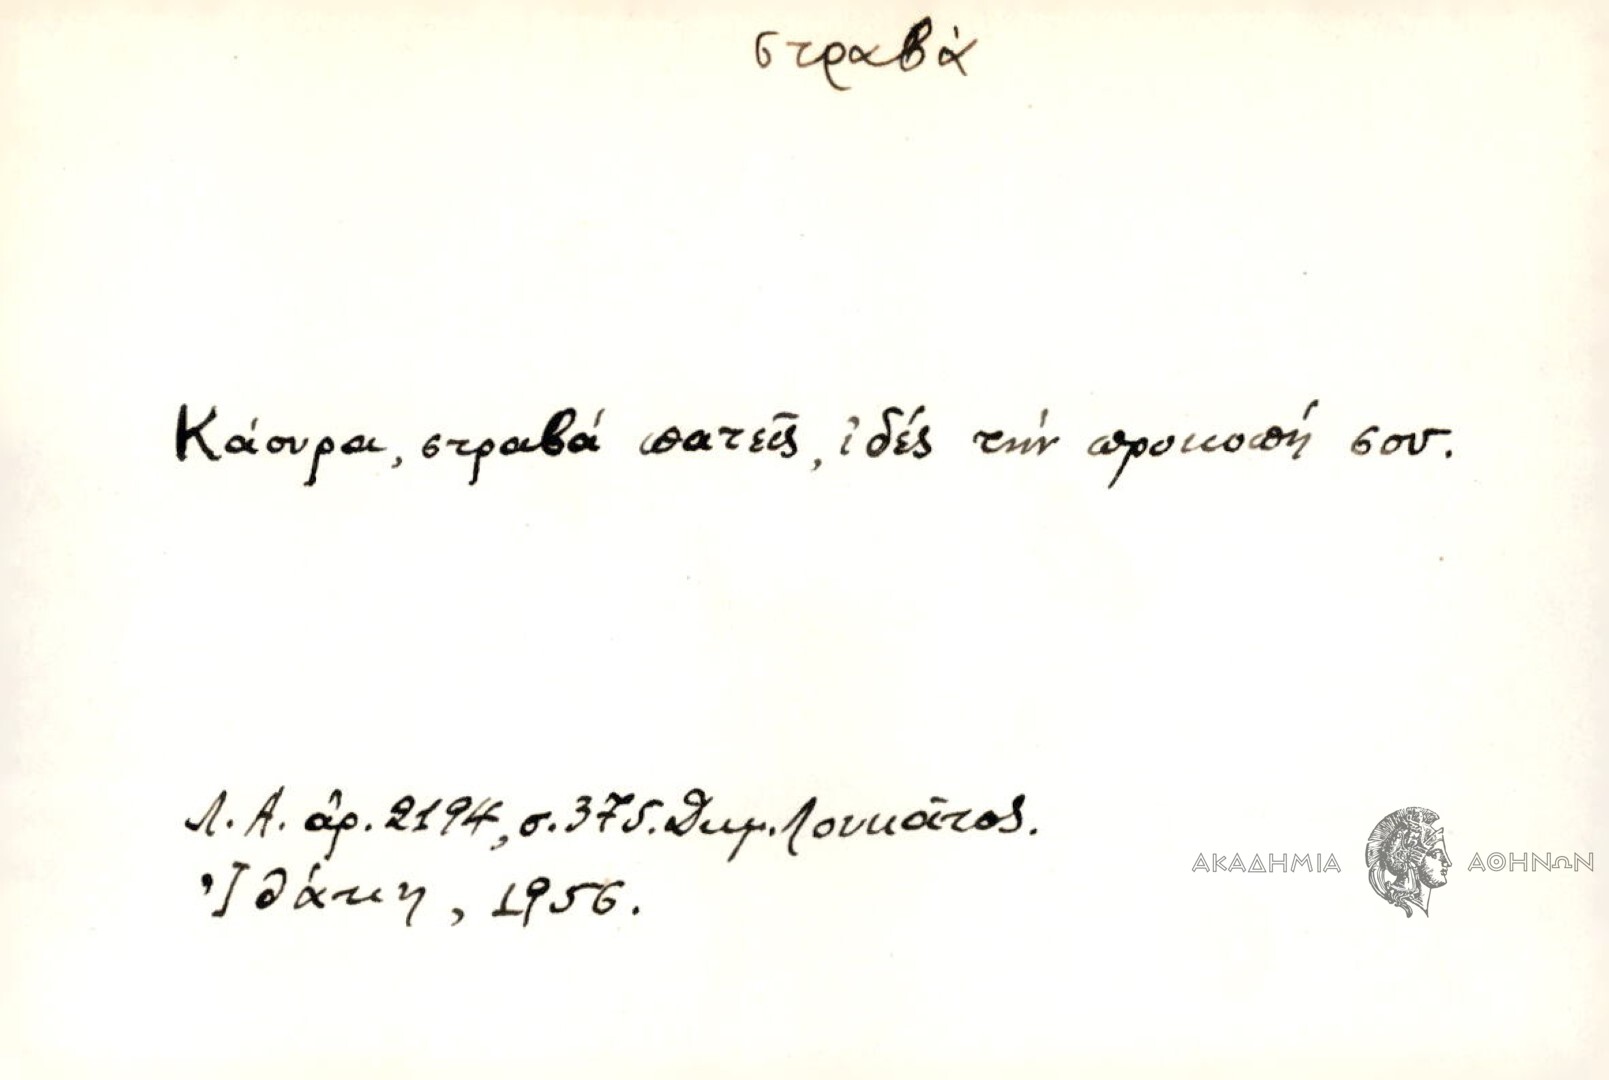 στραβά
Κάουρα, στραβά πατεῖς, ἰδές τήν προκοπή σου.
Λ.Α. ἀρ. 2194, σ. 375. Δημ. Λουκᾶτος.
Ἰθάκη, 1956.
ΑΚΑΔΗΜΙΑ ΑΘΗΝΩΝ